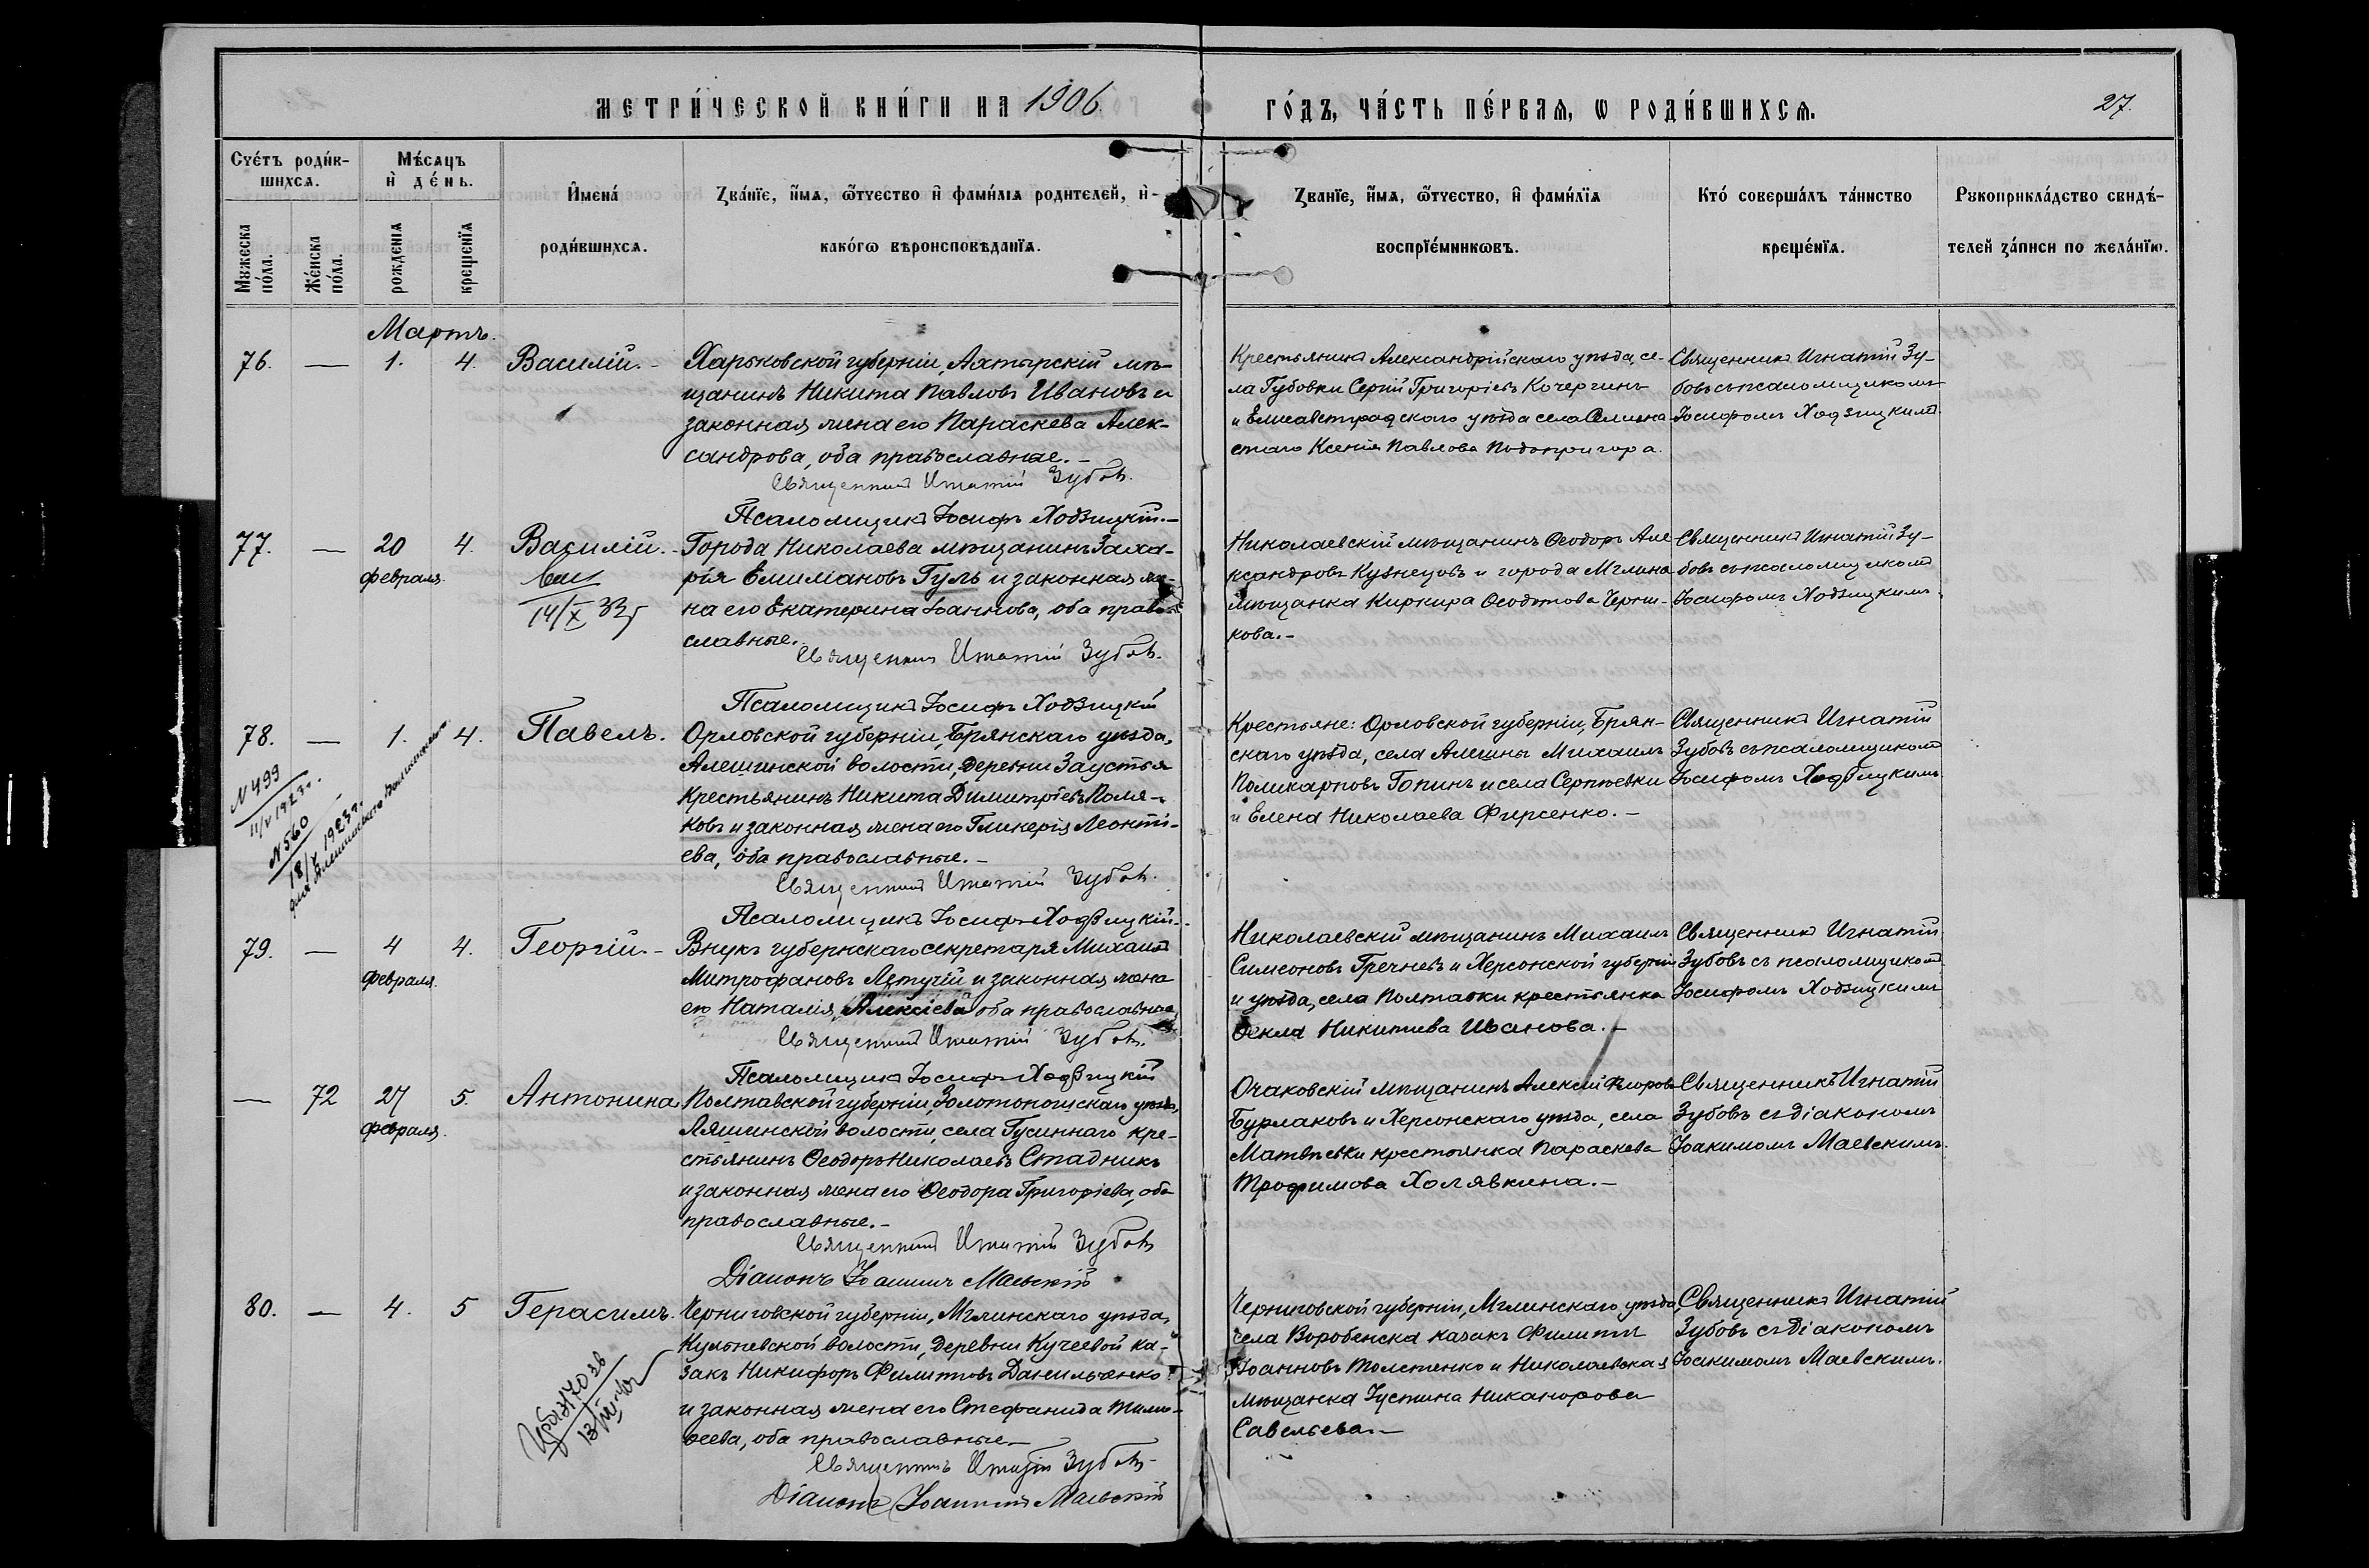 МЕТРИ́ЧЕСКОЙ КНИ́ГИ НА 1906
ГО́ДЪ, ЧА́СТЬ ПЕ́РВАЯ, Ѡ РОДИ́ВШИХСЯ.
27.
Сче́тъ роди́в-
шихся.
Мѣ́сяцъ
и҆ де́нь.
Мужеска
по́ла.
Же́нска
по́ла.
рожденія
крещенїя
И҆мена́
роди́вшихся.
Зва́нїе, и҆́мя, ѻ҆́тчество и҆ фами́лїя родителей, и҆
како́гѡ вѣроисповѣданїя.
Зва́нїе, и҆́мя, ѻ҆́тчество, и҆ фами́лїя
воспрїе́мникѡвъ.
Кто́ соверша́лъ та́инство
креще́нїя.
Рукоприкла́дство свидѣ́-
телей за́писи по жела́нїю.
Мартъ.
76. — 1. 4. Василій. -
Харьковской губерніи, Ахтырскій мѣ-
щанинъ Никита Павловъ Ивановъ и
законная жена его Параскева Алек-
сандрова, оба православные. -
Священникъ Игнатій Зубовъ.
Псаломщикъ Іосифъ Ходзицкій. -
Крестьянинъ Александрійскаго уѣзда, се-
ла Губовки Сергій Григоріевъ Кочергинъ
и Елисаветградскаго уѣзда села
Ксенія Павлова Подопригора.
Священникъ Игнатій Зу-
бовъ съ псаломщикомъ
Іосифомъ Ходзицкимъ.
77. — 20 4. Василій. -
февраля.
14/X 33г
Города Николаева мѣщанинъ Заха-
рія Емиліановъ Гуль и законная же-
на его Екатерина Іоаннова, оба право-
славные.
Священникъ Игнатій Зубовъ.
Псаломщикъ Іосифъ Ходзицкій
Николаевскій мѣщанинъ Ѳеодоръ Але-
ксандровъ Кузнецовъ и города Мглина
мѣщанка Ѳеодотова Черни-
кова. -
Священникъ Игнатій Зу-
бовъ съ псаломщикомъ
Іосифомъ Ходзицкимъ.
78. — 1. 4. Павелъ.
N 499
11/V 1923 г.
N 560
18/V 1923 г.
Орловской губерніи, Брянскаго уѣзда,
Алешинской волости, деревни Заустья
крестьянинъ Никита Димитріевъ Поля-
ковъ и законная жена его Гликерія Леонті-
ева, оба православные. -
Священникъ Игнатій Зубовъ.
Псаломщикъ Іосифъ Ходзицкій. -
Крестьяне: Орловской губерніи, Брян-
скаго уѣзда, села Алешны Михаилъ
Поликарповъ Гопинъ и села Сергѣевки
и Елена Николаева Фирсенко. -
Священникъ Игнатій
Зубовъ съ псаломщикомъ
Іосифомъ Ходзицкимъ.
79. — 4 4. Георгій. -
февраля.
Внукъ губернскаго секретаря Михаилъ
Митрофановъ Летучій и законная жена
его Наталія Алексіева оба православные.
Священникъ Игнатій Зубовъ.
Псаломщикъ Іосифъ Ходзицкій
Николаевскій мѣщанинъ Михаилъ
Симеоновъ Гречневъ и Херсонской губерніи
и уѣзда, села Полтавки крестьянка
Ѳекла Никитина Иванова. -
Священникъ Игнатій
Зубовъ съ псаломщикомъ
Іосифомъ Ходзицкимъ
— 72 27 5. Антонина.
февраля.
Полтавской губерніи, Золотоношскаго уѣзда,
Ляшинской волости, села Гусиннаго кре-
стьянинъ Ѳеодоръ Николаевъ Стадникъ
и законная жена его Ѳеодора Григоріева, оба
православные. -
Священникъ Игнатій Зубовъ
Діаконъ Іоакимъ Маевскій
Очаковскій мѣщанинъ Алексій Флоровъ
Бурлаковъ и Херсонскаго уѣзда, села
Матвѣевки крестьянка Параскева
Трофимова Холявкина. -
Священникъ Игнатій
Зубовъ съ діакономъ
Іоакимомъ Маевскимъ.
80. — 4. 5 Герасимъ.
Черниговской губерніи, Мглинскаго уѣзда,
Кульневской волости, деревни Кучеевой ка-
закъ Никифоръ Филипповъ Данильченко
и законная жена его Стефанида Тимо-
ѳеева, оба православные -
Священникъ Игнатій Зубовъ
Діаконъ Іоакимъ Маевскій
Черниговской губерніи, Мглинскаго уѣзда
села Воробейска казакъ Филиппъ
Іоанновъ Толстенко и Николаевская
мѣщанка Іустина Никанорова
Савельева. -
Священникъ Игнатій
Зубовъ съ діакономъ
Іоакимомъ Маевскимъ.